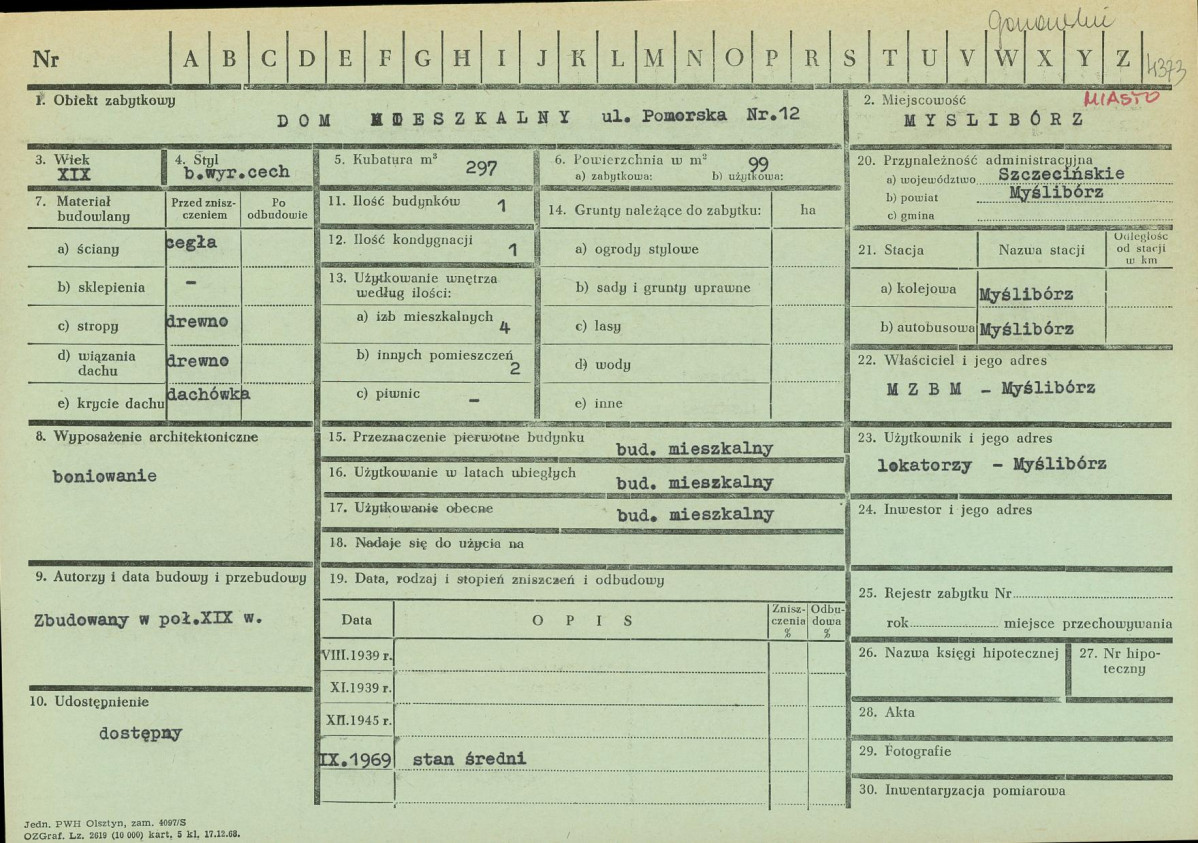 Nr A B C D E F G H I J K L M N O P R S T U V W X Y Z
4373
1. Obiekt zabytkowy
DOM MIESZKALNY ul. Pomorska Nr.12
2. Miejscowość
MIASTO
MYSLIBÓRZ
3. Wiek
XIX
4. Styl
b.wyr.cech
5. Kubatura m³
297
6. Powierzchnia w m²
99
a) zabytkowa: b) użytkowa:
20. Przynależność administracyjna
a) województwo Szczecińskie
b) powiat Myślibórz
c) gmina
7. Materiał budowlany
Przed znisz-
czeniem
Po
odbudowie
a) ściany cegła
b) sklepienia –
c) stropy drewno
d) wiązania
dachu drewno
e) krycie dachu dachówka
11. Ilość budynków 1
12. Ilość kondygnacji 1
13. Użytkowanie wnętrza
według ilości:
a) izb mieszkalnych 4
b) innych pomieszczeń 2
c) piwnic –
14. Grunty należące do zabytku: ha
a) ogrody stylowe
b) sady i grunty uprawne
c) lasy
d) wody
e) inne
21. Stacja
Nazwa stacji
Odległość
od stacji
w km
a) kolejowa Myślibórz
b) autobusowa Myślibórz
22. Właściciel i jego adres
M Z B M – Myślibórz
8. Wyposażenie architektoniczne
boniowanie
15. Przeznaczenie pierwotne budynku
bud. mieszkalny
16. Użytkowanie w latach ubiegłych
bud. mieszkalny
17. Użytkowanie obecne
bud. mieszkalny
18. Nadaje się do użycia na
23. Użytkownik i jego adres
lokatorzy – Myślibórz
24. Inwestor i jego adres
9. Autorzy i data budowy i przebudowy
Zbudowany w poł.XIX w.
19. Data, rodzaj i stopień zniszczeń i odbudowy
Data
O P I S
Znisz-
czenia
%
Odbu-
dowa
%
VIII.1939 r.
XI.1939 r.
XII.1945 r.
IX.1969 stan średni
25. Rejestr zabytku Nr
rok miejsce przechowywania
26. Nazwa księgi hipotecznej
27. Nr hipo-
teczny
10. Udostępnienie
dostępny
28. Akta
29. Fotografie
30. Inwentaryzacja pomiarowa
Jedn. PWH Olsztyn, zam. 4097/S
OZGraf. Lz. 2619 (10 000) kart, 5 kl, 17.12.68.